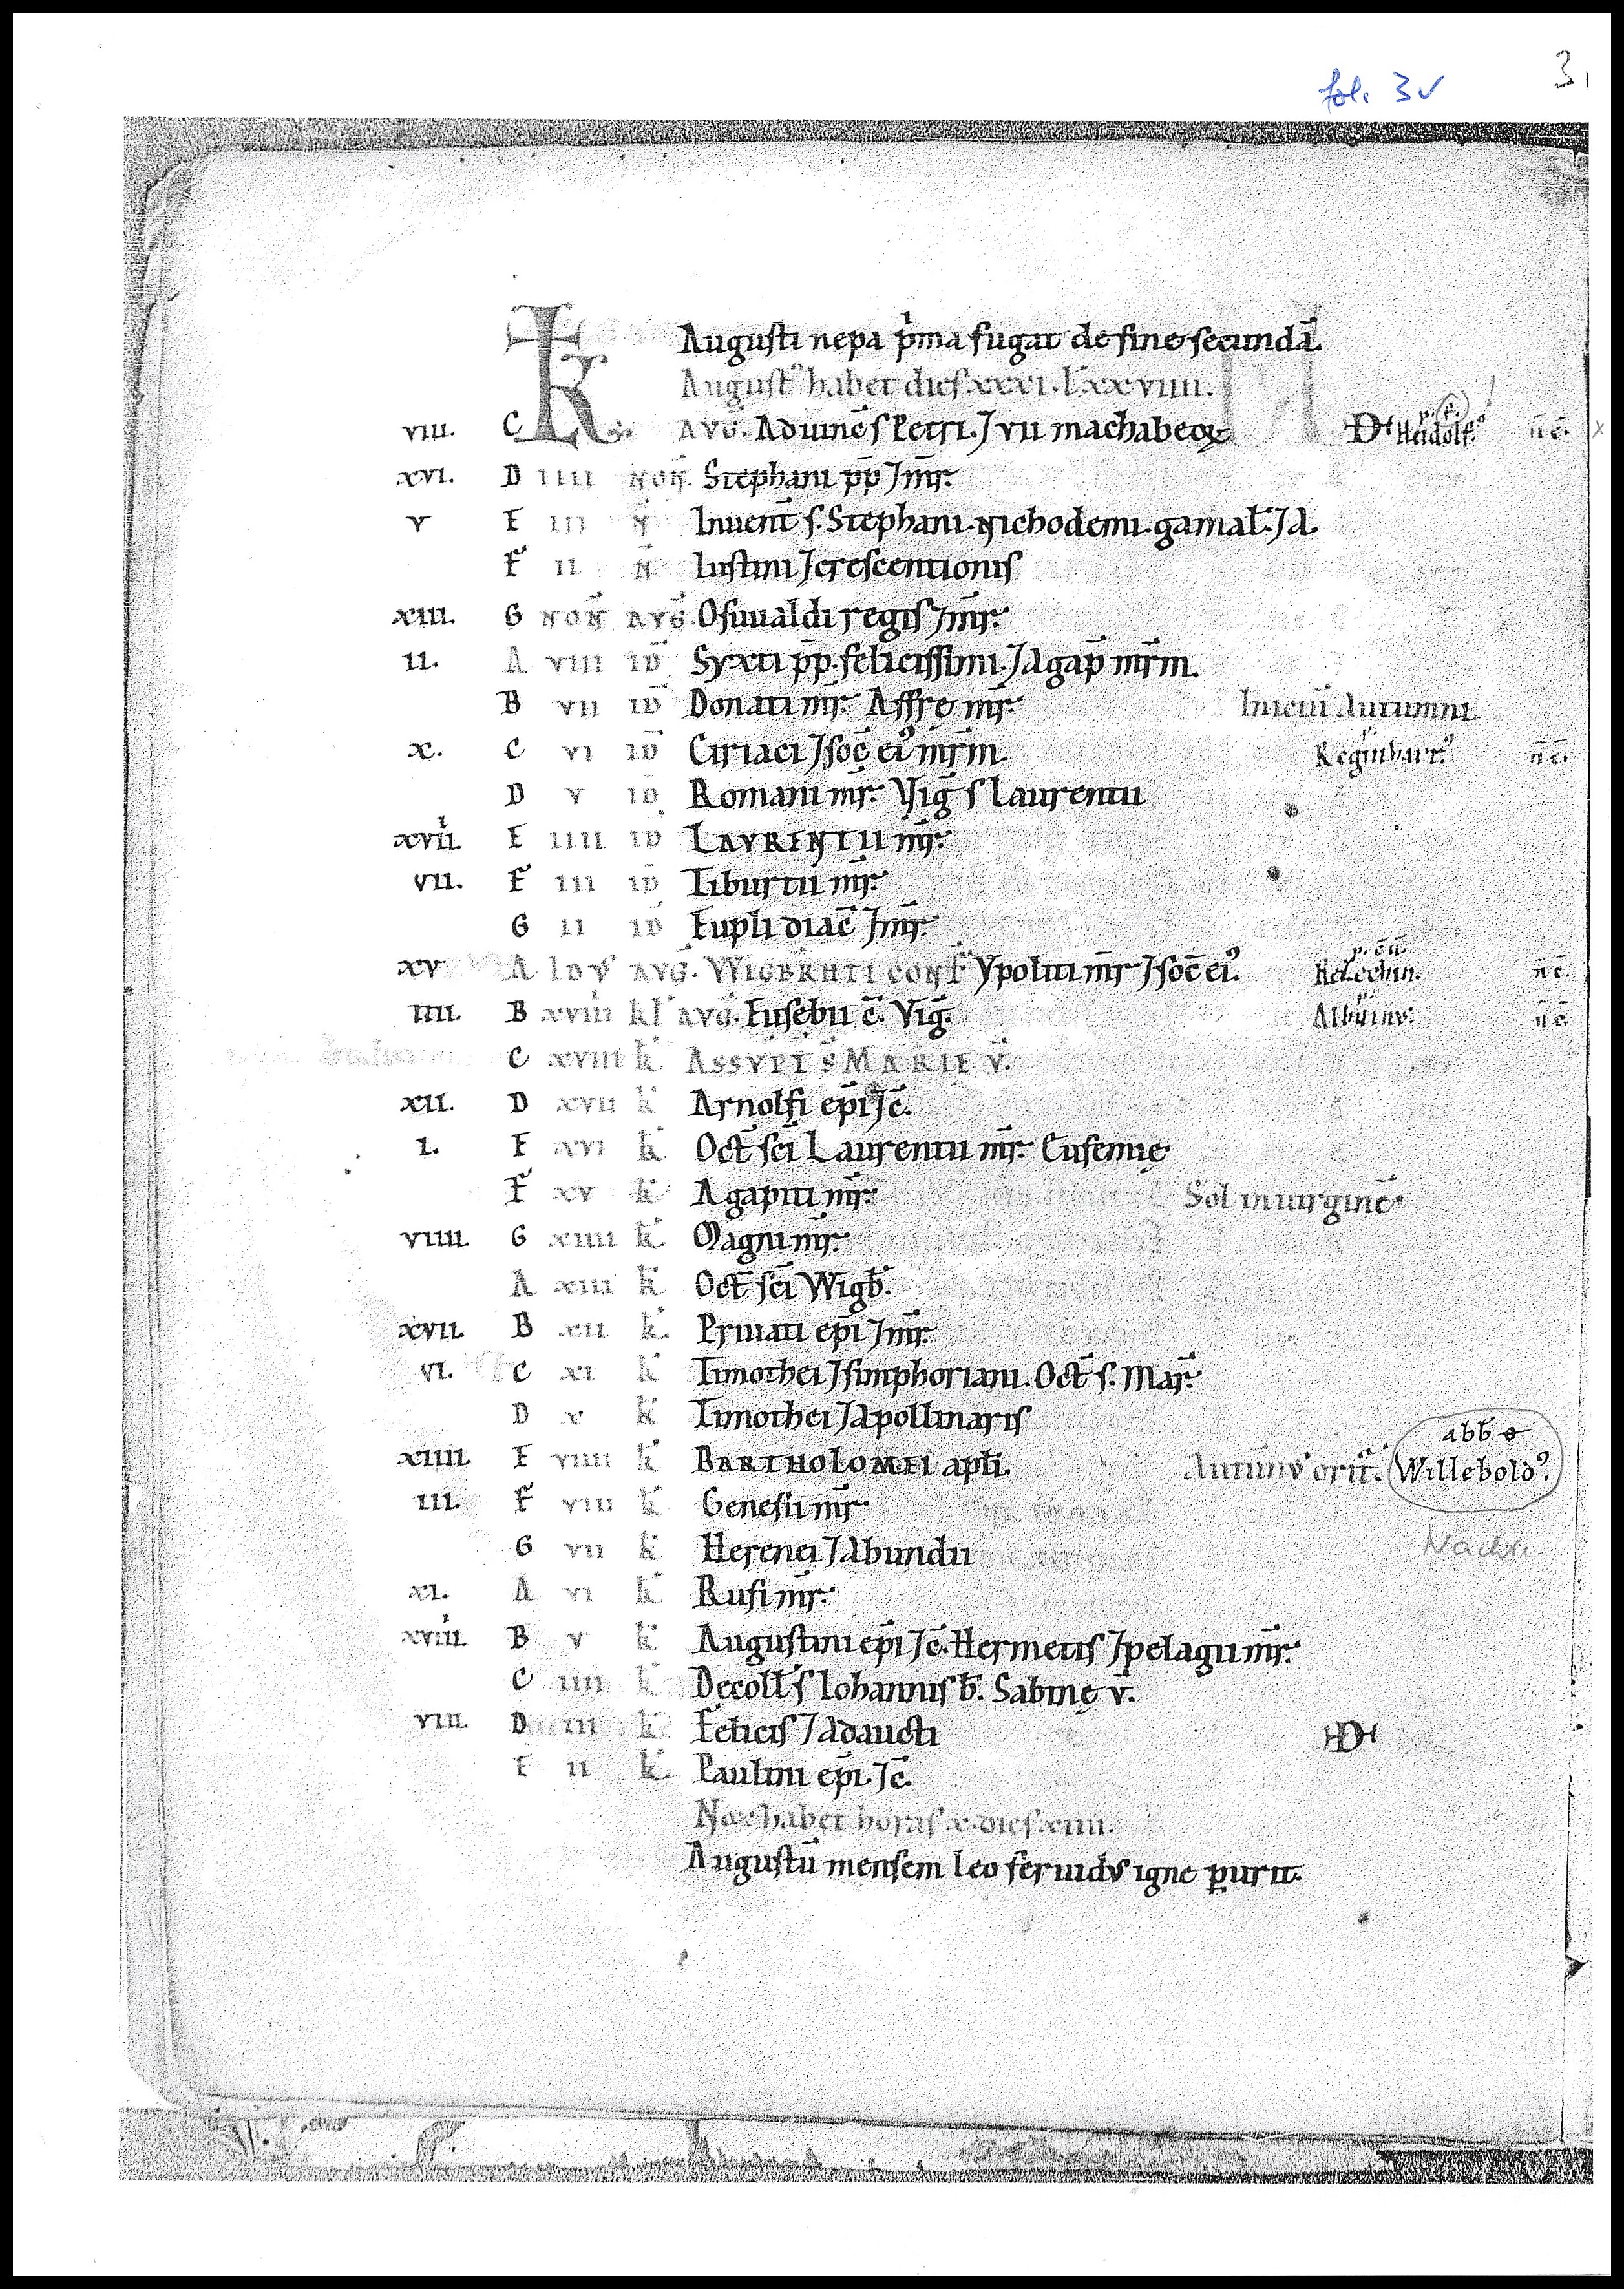 fol. 3v
3
Augusti nepa p'ma fugat de fine secundā.
August' habet dies xxxi. L' xxviiii.
viii. C KL AVG. Ad uinc̄ s Petri. ⁊ vii machabeoꝝ D Heidolf' n̄ c̄.
xvi. D iiii noñ. Stephani pp̄ ⁊ mr̄.
v E iii ñ Inuent̄ s. Stephani. Nichodemi. gamal'. ⁊ A.
F ii ñ Iustini ⁊ crescentionis
xiii. G noñ avḡ. Osuualdi regis ⁊ mr̄.
ii. A viii id̄ Syxti pp̄. felicissimi. ⁊ Agap̄ mr̄m.
B vii id̄ Donati mr̄. Affrę mr̄. Iniciū Autumni
x. C vi id̄ Ciriaci ⁊ soc̄ ei' mr̄m. Reginhart' n̄ c̄.
D v id̄ Romani mr̄. Viḡ s Laurentii
xviii. E iiii id̄ LAVRENTII mr̄.
vii. F iii id̄ Tiburtii mr̄.
G ii id̄ Eupli diac̄ ⁊ mr̄.
xv A Idv' avḡ. WIGBERHTI CONF Ypoliti mr̄ ⁊ soc̄ ei'. n̄ c̄.
iiii. B xviiii kl' avḡ. Eusebii c̄. Viḡ. Albuinv'. n̄ c̄.
C xviii k' ASSVPT S MARIE V.
xii. D xvii k' Arnolfi ep̄i ⁊ c̄.
i. E xvi k' Oct̄ sc̄i Laurentii mr̄. Eufemię
F xv k' Agapiti mr̄. Sol in uirginē
viiii. G xiiii k' Magni mr̄.
A xiii k' Oct̄ sc̄i Wigb'.
xvii. B xii k'. Priuati ep̄i ⁊ mr̄.
vi. C xi k' Timothei ⁊ simphoriani. Oct̄ s. Mar̄.
D x k' Timothei ⁊ Apollinaris
xiiii. E viiii k' BARTHOLOMEI apl'i. Autumnv' orit̄. abb Willebold'.
iii. F viii k' Genesii mr̄
G vii k' Herenei ⁊ Abundii
xi. A vi k' Rufi mr̄.
xviiii. B v k' Augustini ep̄i ⁊ c̄. Hermetis ⁊ pelagii mr̄.
C iiii k' Decoll' s Iohannis b'. Sabinę v̄.
viii. D iii k' Felicis ⁊ Adaucti D
E ii k'. Paulini ep̄i. ⁊ c̄.
Nox habet horas x. dies xiiii.
Augustū mensem leo feruidus igne ꝑurit.